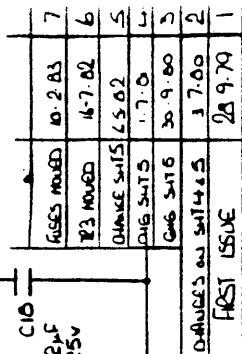 FUSES MOVED 10.2.83 7
TR3 MOVED 16-7.82 6
CHANGE SHT5 6.5.82 5
CHG SHT 5 1.7.81 4
CHG SHT 6 30.9.80 3
CHANGES ON SHT 4 & 5 3 7.80 2
FIRST ISSUE 28 9.79 1
C18
2µF
5V